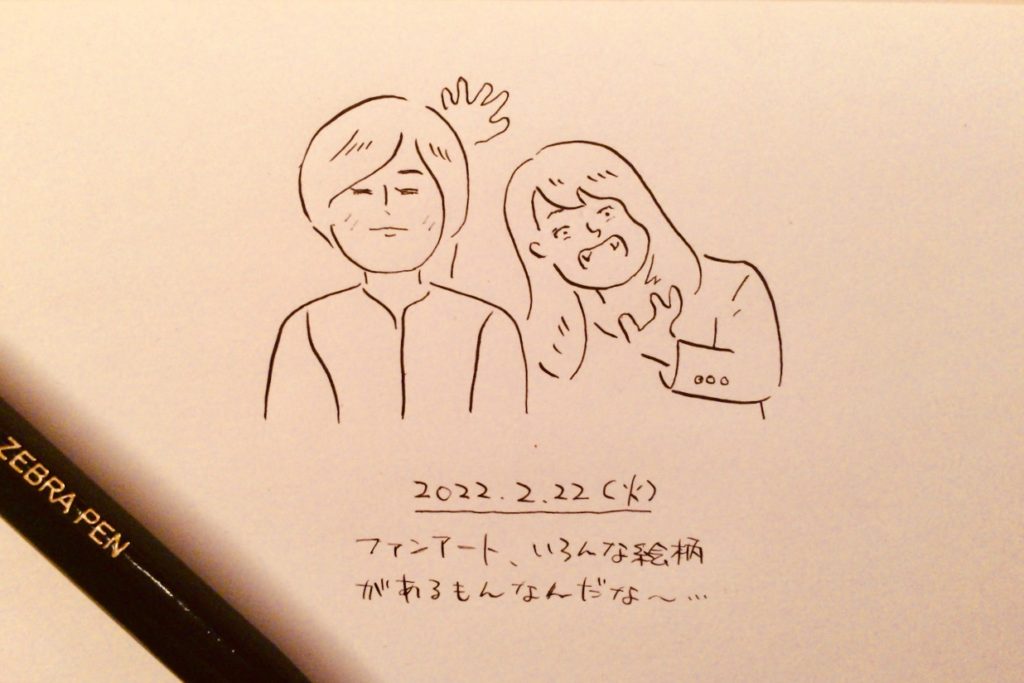 2022.2.22(火)
ファンアート、いろんな絵柄
があるもんなんだな〜…
ZEBRA PEN